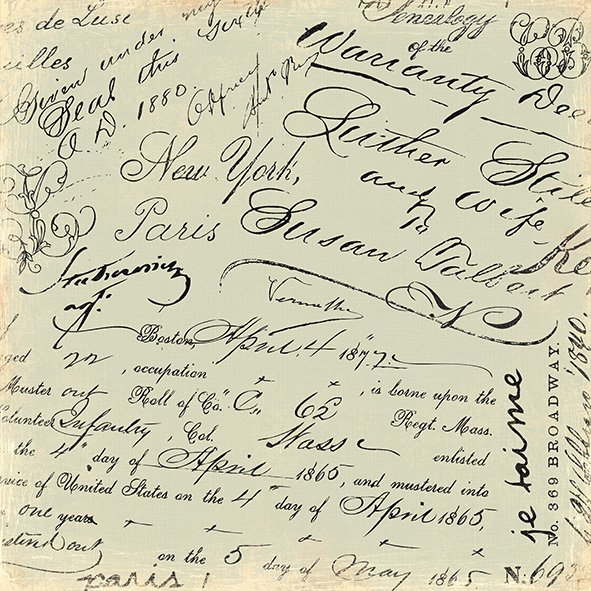 es de Luse
Genealogy
of the
Warranty Dee
illes
Given under
Seal this
A D. 1880.
Luther Stile
and Wife
To
Susan Talbot
New York,
Paris
Boston, April. 4 1877.
ged 22, occupation + +, is borne upon the
Muster out Roll of Co. "C." 62 Regt. Mass.
Volunteer Infantry, Col. enlisted
the 4" day of April 1865, and mustered into
rvice of United States on the 4" day of April 1865,
one years + + +
on the 5 day of May 1865
paris !
je t'aime
No. 369 BROADWAY.
1840.
N: 69